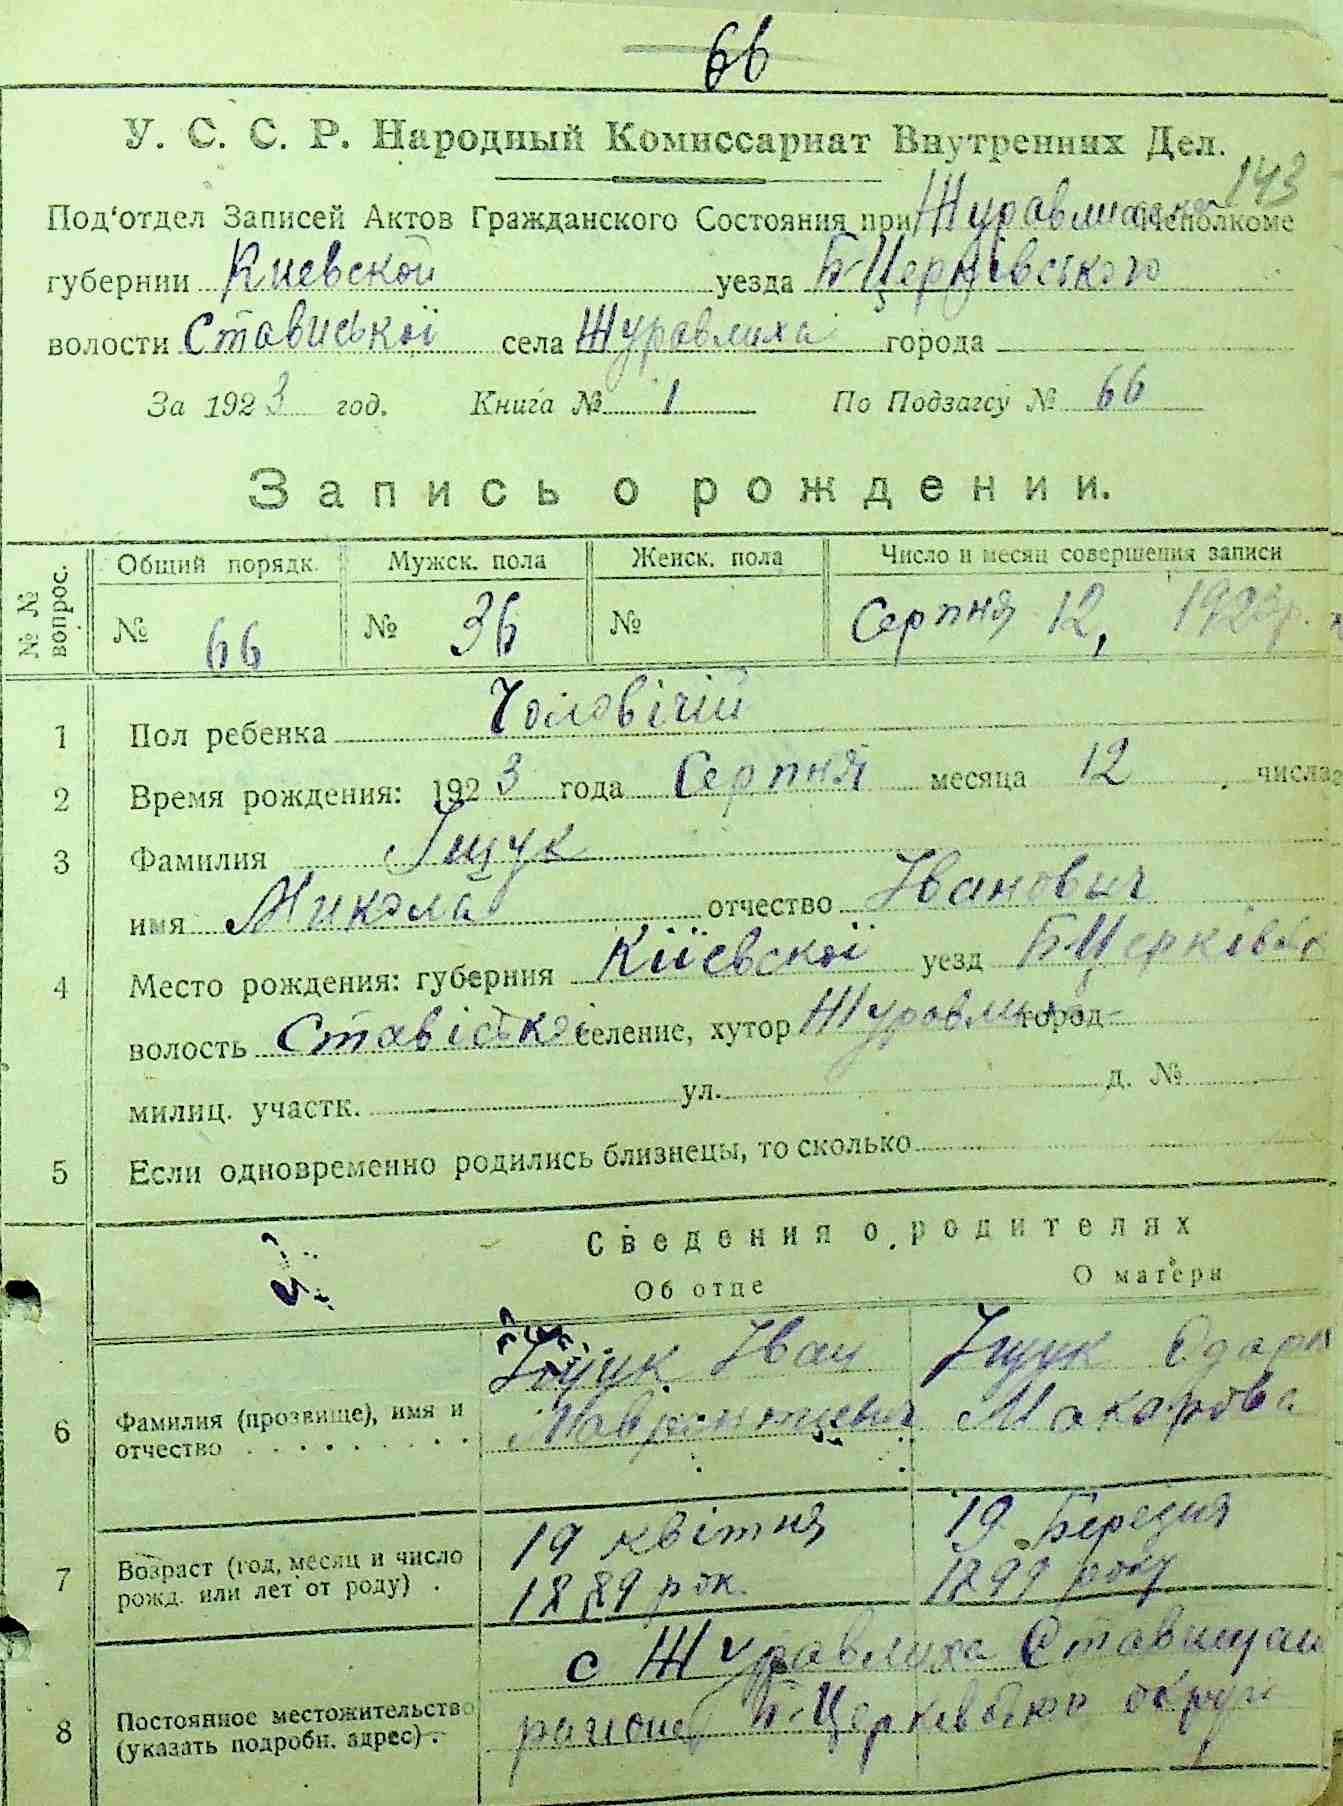 66
У. С. С. Р. Народный Комиссариат Внутренних Дел.
143
Под'отдел Записей Актов Гражданского Состояния при Журавлиськом Исполкоме
губернии Киевской уезда Б-Церківського
волости Стависької села Журавлиха города
За 1923 год. Книга № 1 По Подзагсу № 66
Запись о рождении.
№ № вопрос.
Общий порядк. Мужск. пола Женск. пола Число и месяц совершения записи
№ 66 № 36 № Серпня 12, 1923 р.
1 Пол ребенка Чоловічій
2 Время рождения: 1923 года Серпня месяца 12 числа
3 Фамилия Іщук
имя Микола отчество Іванович
4 Место рождения: губерния Кіївскої уезд Б Церківськ
волость Ставіськ селение, хутор Журавлиха город
милиц. участк. ул. д. №
5 Если одновременно родились близнецы, то сколько
Сведения о родителях
Об отце О матери
6 Фамилия (прозвище), имя и отчество
Іщук Іван
Іщук Одарка
Макарова
7 Возраст (год, месяц и число рожд. или лет от роду)
19 квітня
1889 рок.
19 Березня
1899 року
8 Постоянное местожительство (указать подробн. адрес)
с Журавлиха Ставищан
району Б-Церківською округи